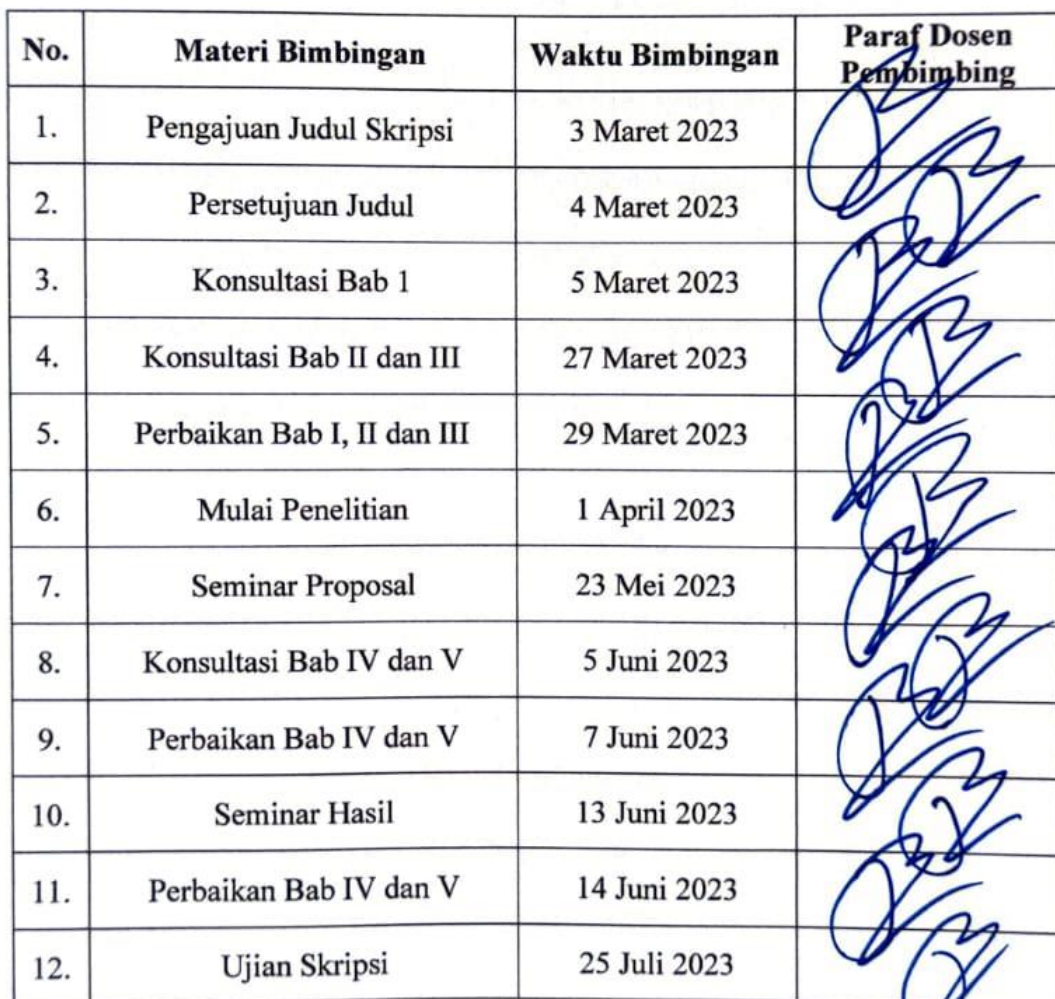 No. Materi Bimbingan Waktu Bimbingan Paraf Dosen Pembimbing
1. Pengajuan Judul Skripsi 3 Maret 2023
2. Persetujuan Judul 4 Maret 2023
3. Konsultasi Bab 1 5 Maret 2023
4. Konsultasi Bab II dan III 27 Maret 2023
5. Perbaikan Bab I, II dan III 29 Maret 2023
6. Mulai Penelitian 1 April 2023
7. Seminar Proposal 23 Mei 2023
8. Konsultasi Bab IV dan V 5 Juni 2023
9. Perbaikan Bab IV dan V 7 Juni 2023
10. Seminar Hasil 13 Juni 2023
11. Perbaikan Bab IV dan V 14 Juni 2023
12. Ujian Skripsi 25 Juli 2023